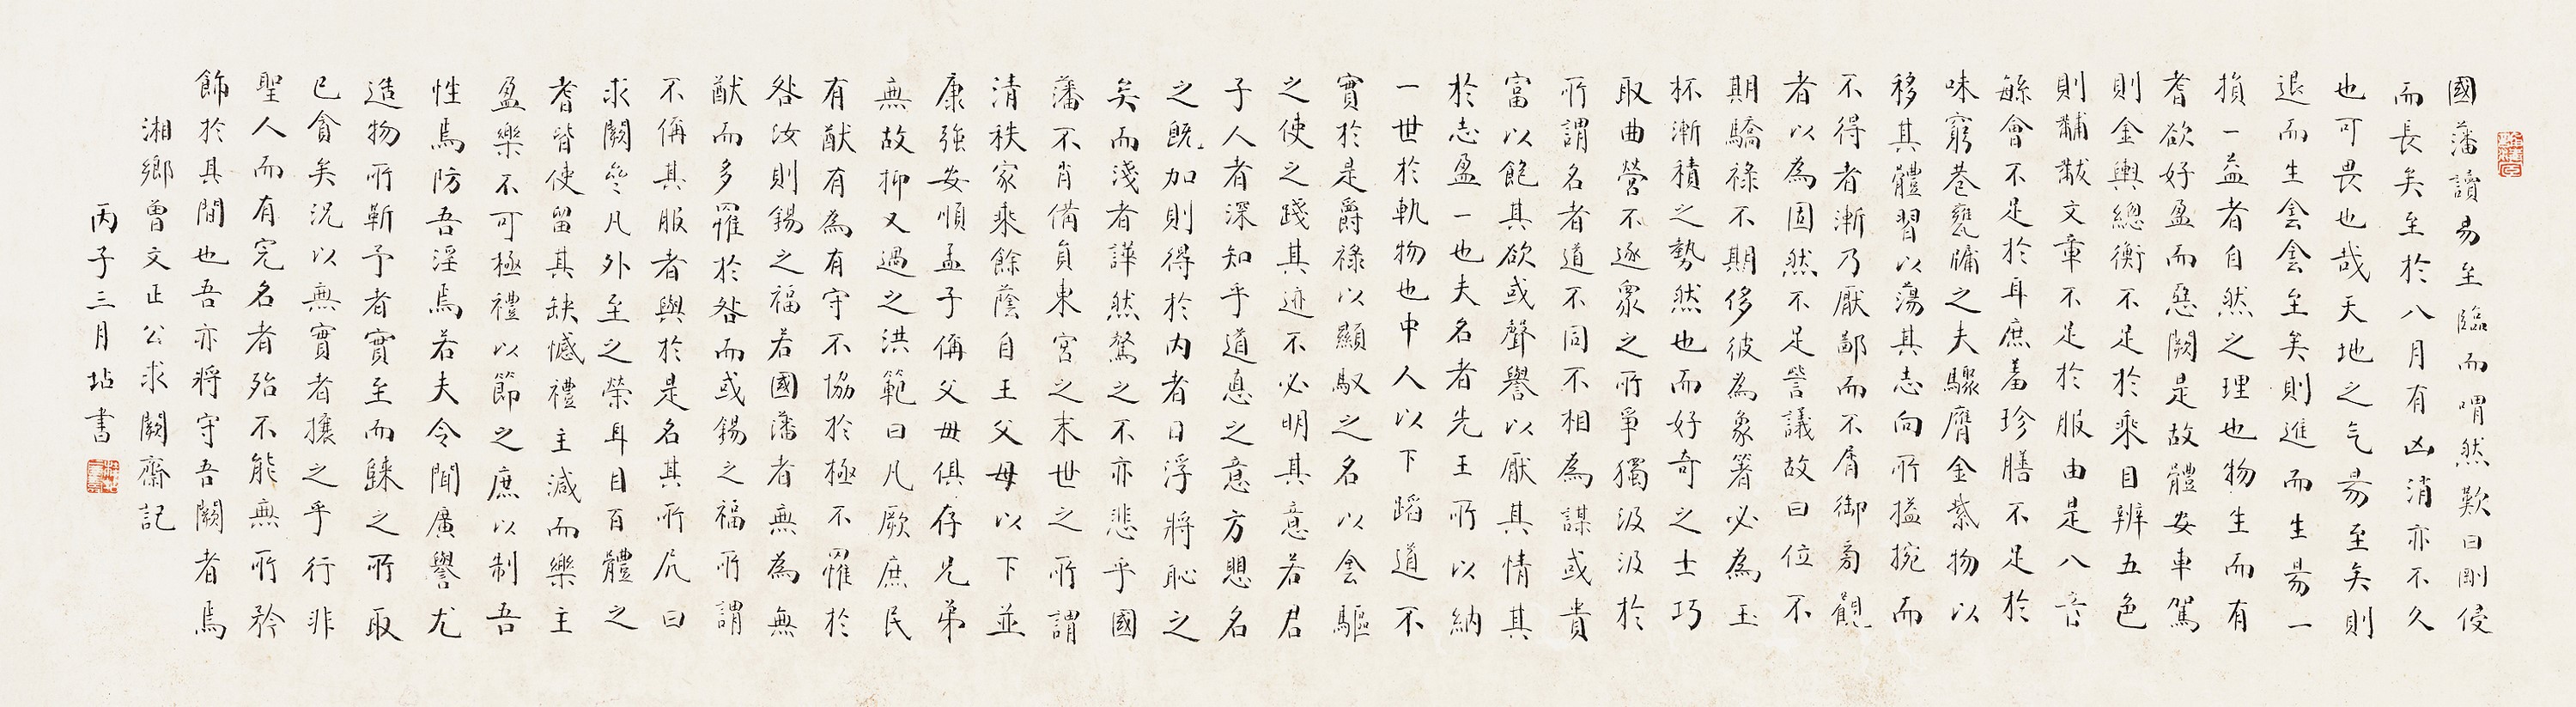 國藩讀易至臨而喟然歎曰剛侵
而長矣至於八月有凶消亦不久
也可畏也哉天地之气昜至矣則
退而生侌侌至矣則進而生昜一
損一益者自然之理也物生而有
耆欲好盈而惡闕是故體安車駕
則金輿總衡不足於乘目辨五色
則黼黻文章不足於服由是八音
繇會不足於耳庶羞珍膳不足於
味窮巷甕牖之夫驟膺金紫物以
移其體習以蕩其志向所搤捥而
不得者漸乃厭鄙而不屑御旁觀
者以為固然不足訾議故曰位不
期驕祿不期侈彼為象箸必為玉
杯漸積之勢然也而好奇之士巧
取曲營不逐眾之所爭獨汲汲於
所謂名者道不同不相為謀或貴
富以飽其欲或聲譽以厭其情其
於志盈一也夫名者先王所以納
一世於軌物也中人以下蹈道不
實於是爵祿以顯馭之名以侌驅
之使之踐其迹不必明其意若君
子人者深知乎道悳之意方思名
之既加則得於內者日浮將恥之
矣而淺者譁然騖之不亦悲乎國
藩不肖備員東宮之末世之所謂
清秩家乘餘蔭自王父母以下並
康強安順孟子偁父母俱存兄弟
無故抑又過之洪範曰凡厥庶民
有猷有為有守不協於極不罹於
咎汝則錫之福若國藩者無為無
猷而多罹於咎而或錫之福所謂
不偁其服者與於是名其所凥曰
求闕參凡外至之榮耳目百體之
耆皆使留其缺憾禮主減而樂主
盈樂不可極禮以節之庶以制吾
性焉防吾淫焉若夫令聞廣譽尤
造物所靳予者實至而歸之所取
已貪矣況以無實者攘之乎行非
聖人而有完名者殆不能無所矜
飾於其間也吾亦將守吾闕者焉
湘鄉曾文正公求闕齋記
丙子三月坫書